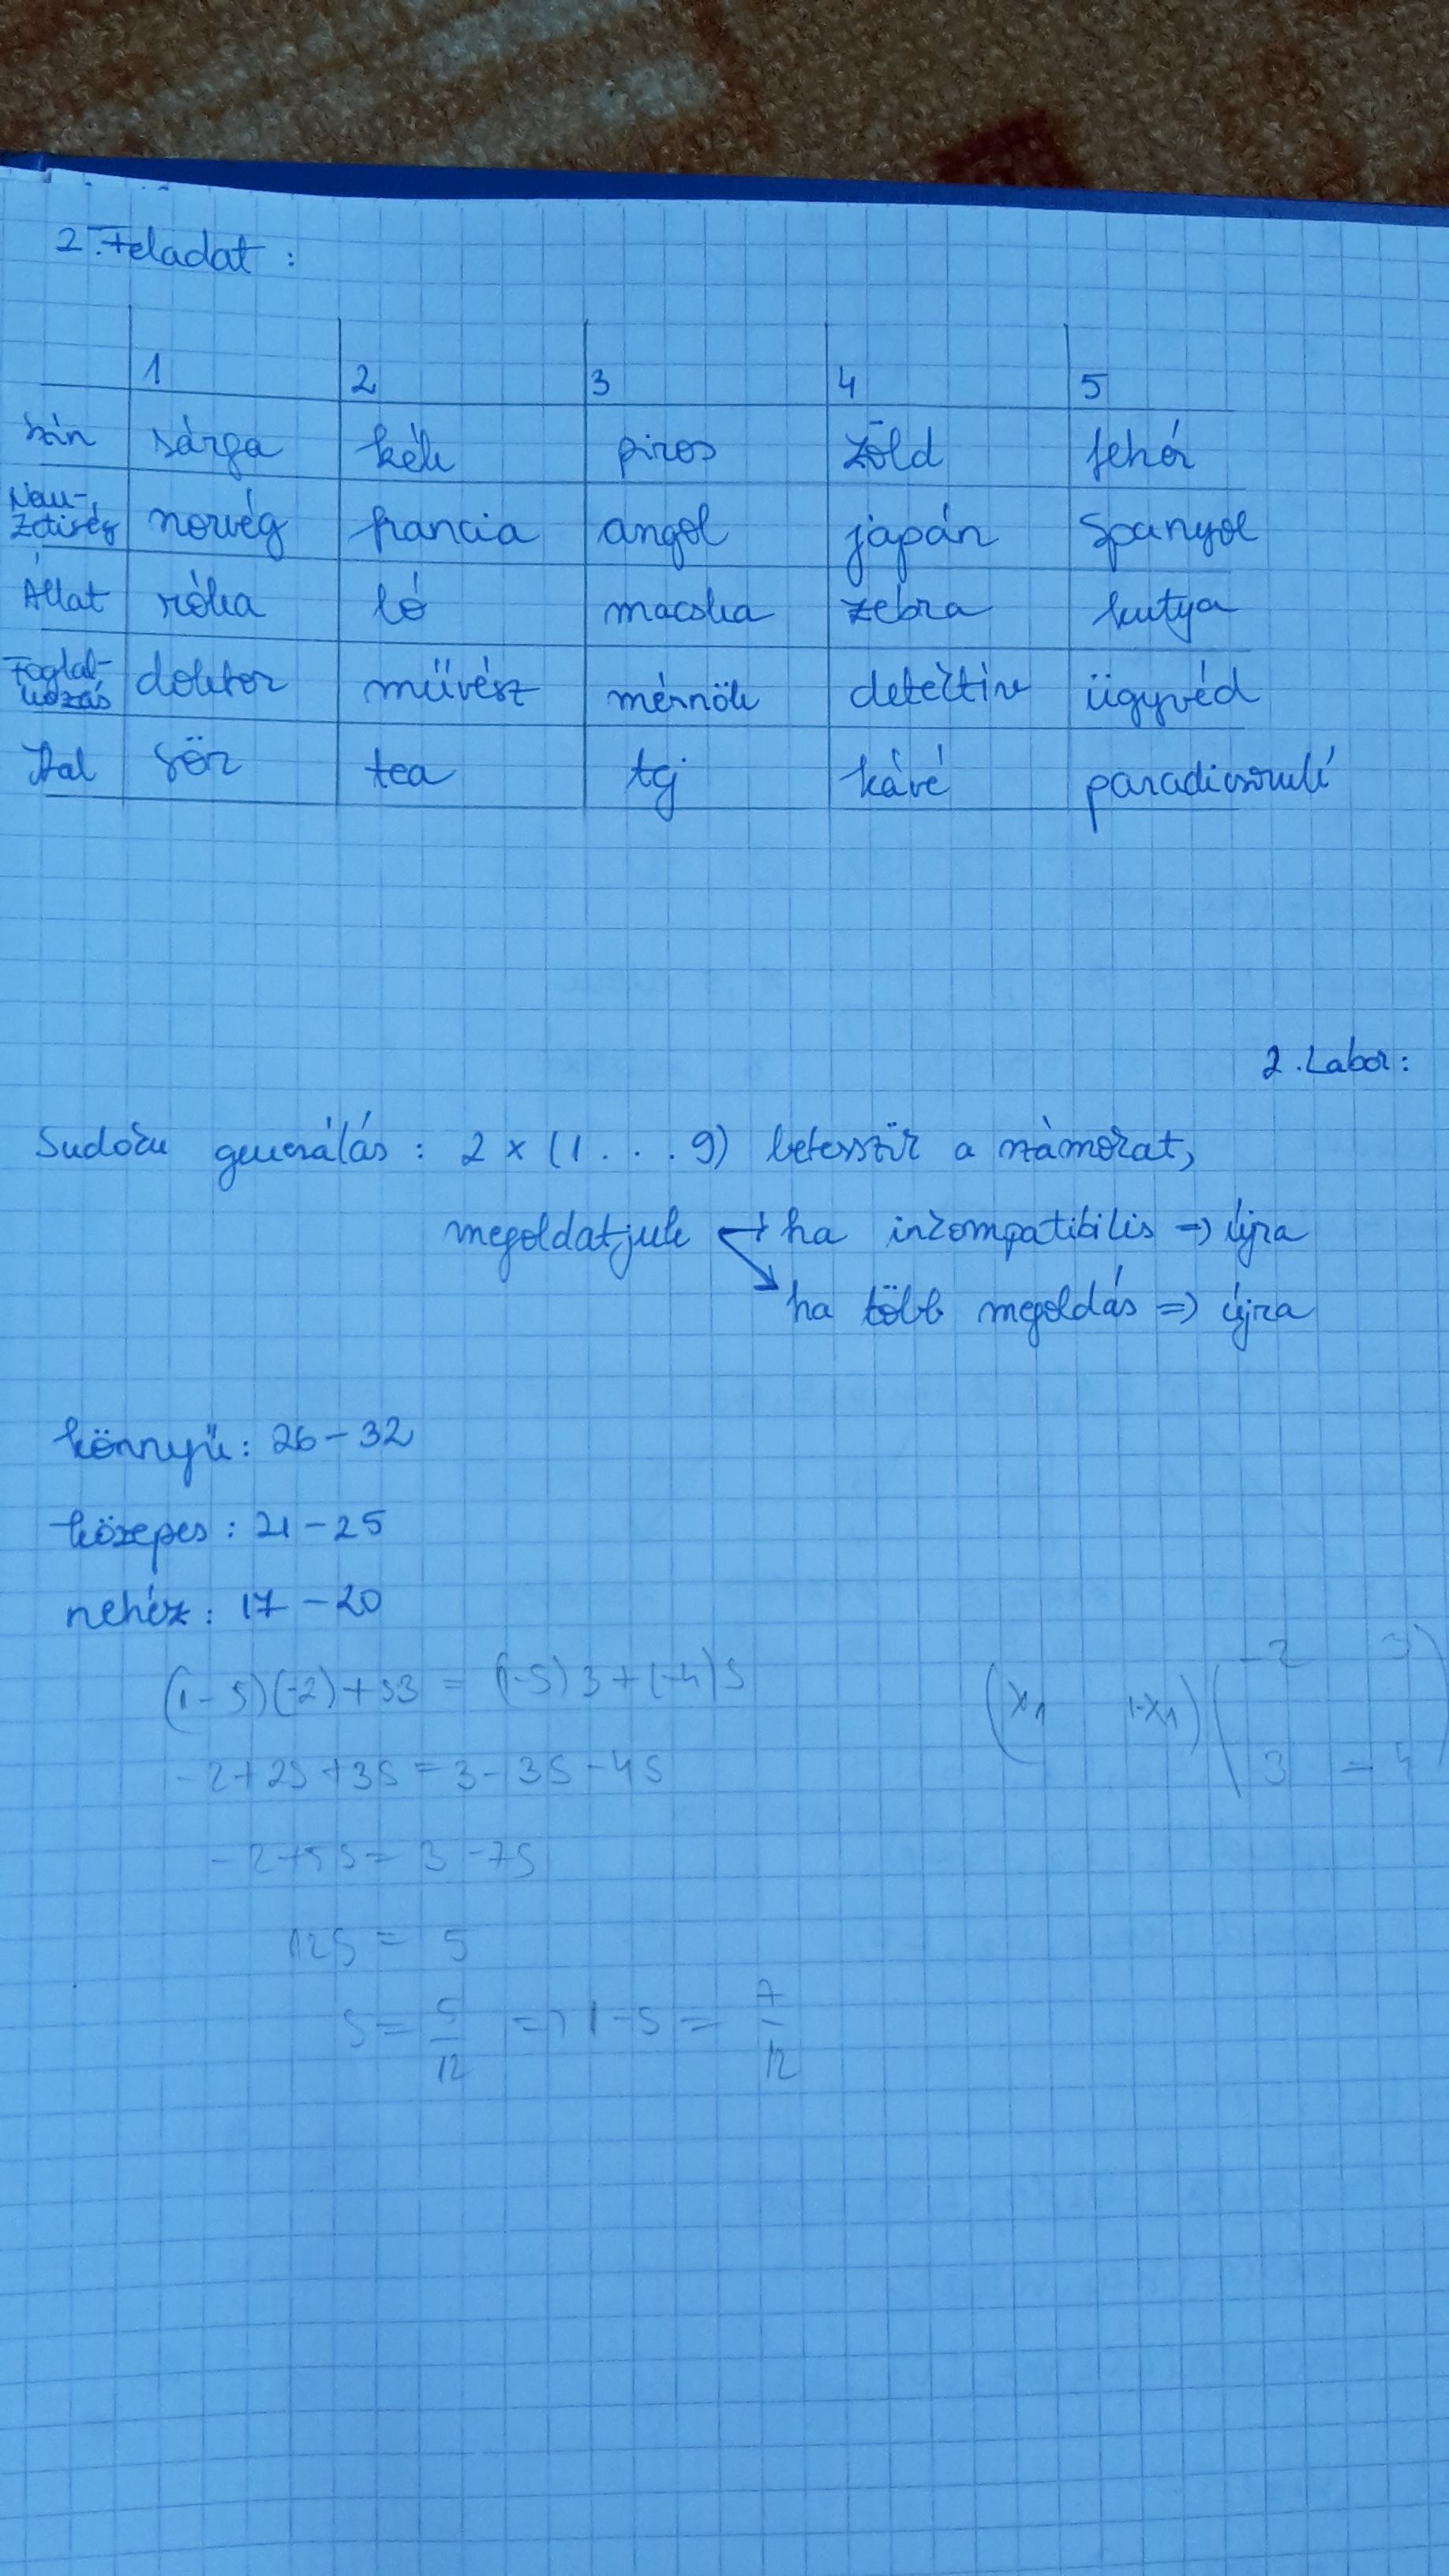 2. Feladat :
1 2 3 4 5
Szín sárga kék piros zöld fehér
Nem-
zetiség norvég francia angol japán spanyol
Állat róka ló macska zebra kutya
Foglal-
kozás doktor művész mérnök detektív ügyvéd
Ital sör tea tej kávé paradicsomlé
2. Labor:
Sudoku generálás : 2 x (1 . . . 9) beteszük a számokat,
megoldatjuk → ha inkompatibilis => újra
ha több megoldás => újra
könnyű: 26-32
közepes : 21-25
nehéz : 17-20
(1-s)(-2)+s3 = (1-s)3+(-4)s
(x1 1-x1) ( -2 3 )
3 -4
-2+2s+3s=3-3s-4s
-2+5s=3-7s
12s = 5
s = 5/12 => 1-s = 7/12